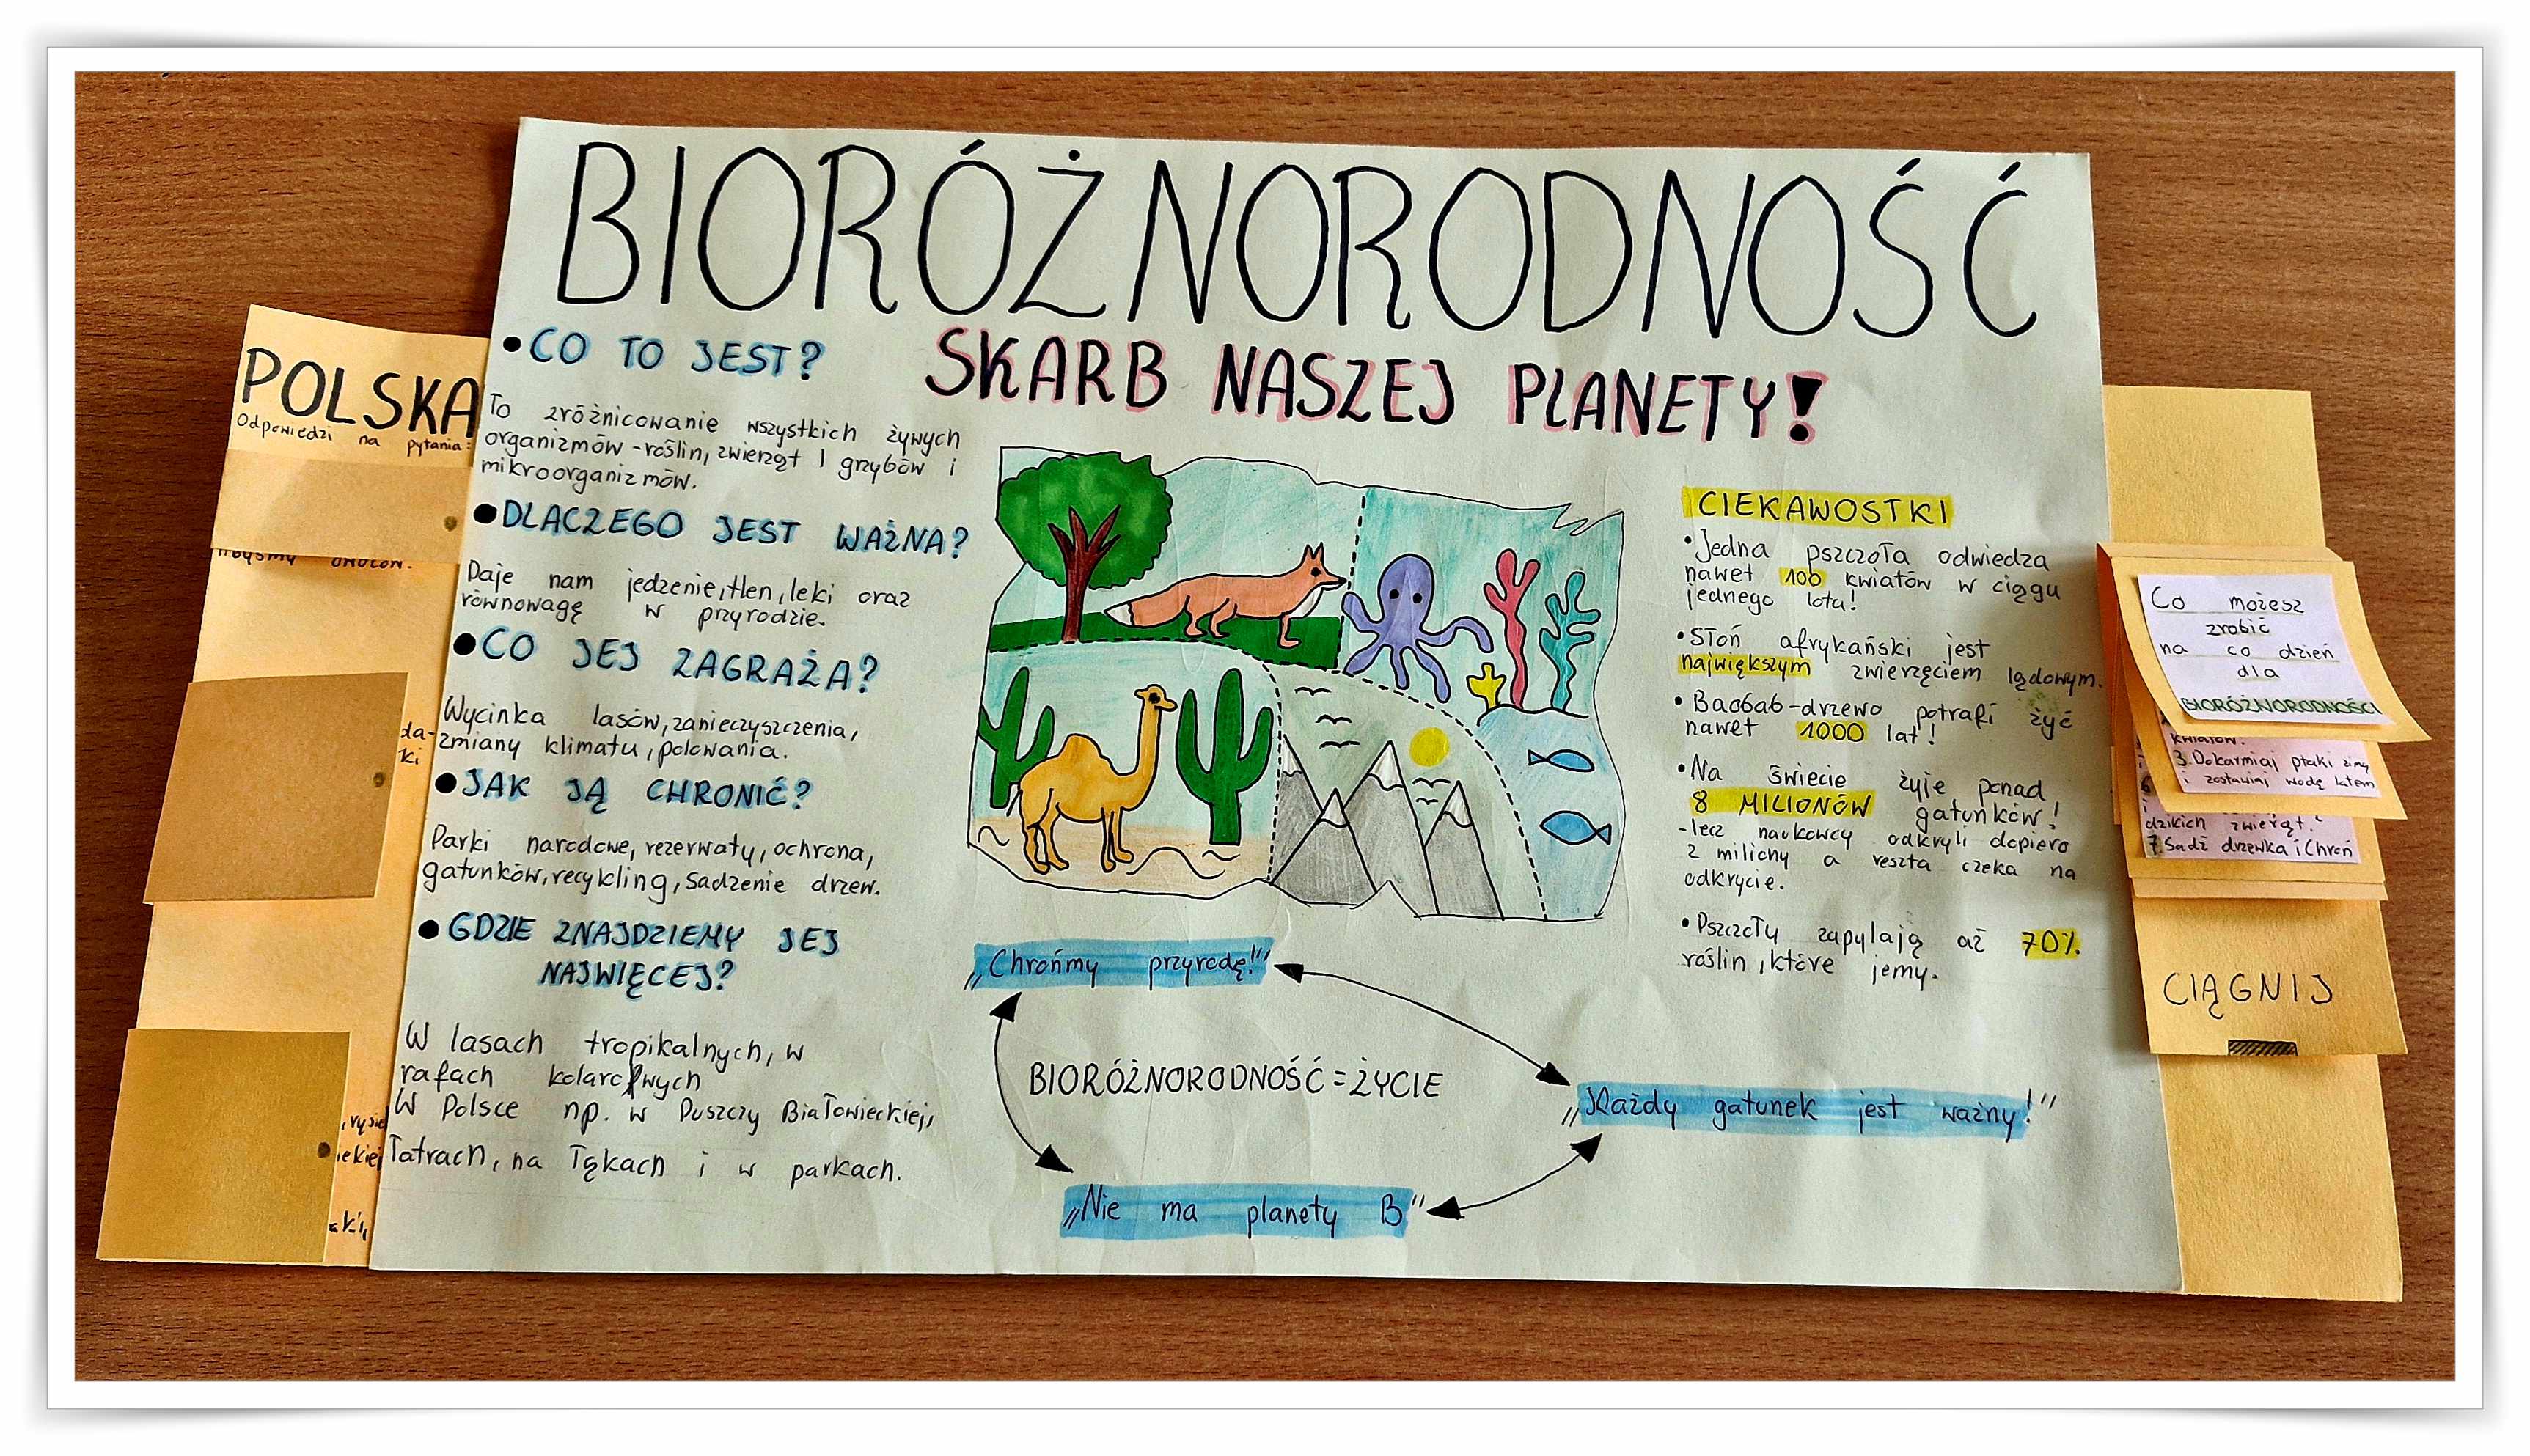 BIORÓŻNORODNOŚĆ
SKARB NASZEJ PLANETY!
• CO TO JEST?
To zróżnicowanie wszystkich żywych
organizmów - roślin, zwierząt I grzybów i
mikroorganizmów.
• DLACZEGO JEST WAŻNA?
Daje nam jedzenie, tlen, leki oraz
równowagę w przyrodzie.
• CO JEJ ZAGRAŻA?
Wycinka lasów, zanieczyszczenia,
zmiany klimatu, polowania.
• JAK JĄ CHRONIĆ?
Parki narodowe, rezerwaty, ochrona,
gatunków, recykling, sadzenie drzew.
• GDZIE ZNAJDZIEMY JEJ
NAJWIĘCEJ?
W lasach tropikalnych, w
rafach
W Polsce np. w Puszczy Białowieckiej,
Tatrach, na Łąkach i w parkach.
„Chrońmy przyrodę!"
BIORÓŻNORODNOŚĆ = ŻYCIE
„Każdy gatunek jest ważny!"
„Nie ma planety B"
CIEKAWOSTKI
• Jedna pszczoła odwiedza
nawet 100 kwiatów w ciągu
jednego lotu!
• Słoń afrykański jest
największym zwierzęciem lądowym.
• Baobab - drzewo potrafi żyć
nawet 1000 lat!
• Na świecie żyje ponad
8 MILIONÓW gatunków!
- lecz naukowcy odkryli dopiero
2 miliony a reszta czeka na
odkrycie.
• Pszczoły zapylają aż 70%
roślin, które jemy.
POLSKA
Odpowiedzi na pytania:
Co możesz
zrobić
na co dzień
dla
BIORÓŻNORODNOŚCI
kwiatów.
3. Dokarmiaj ptaki zimą
i zostawiaj wodę latem
dzikich zwierząt.
7. Sadź drzewka i chroń
CIĄGNIJ